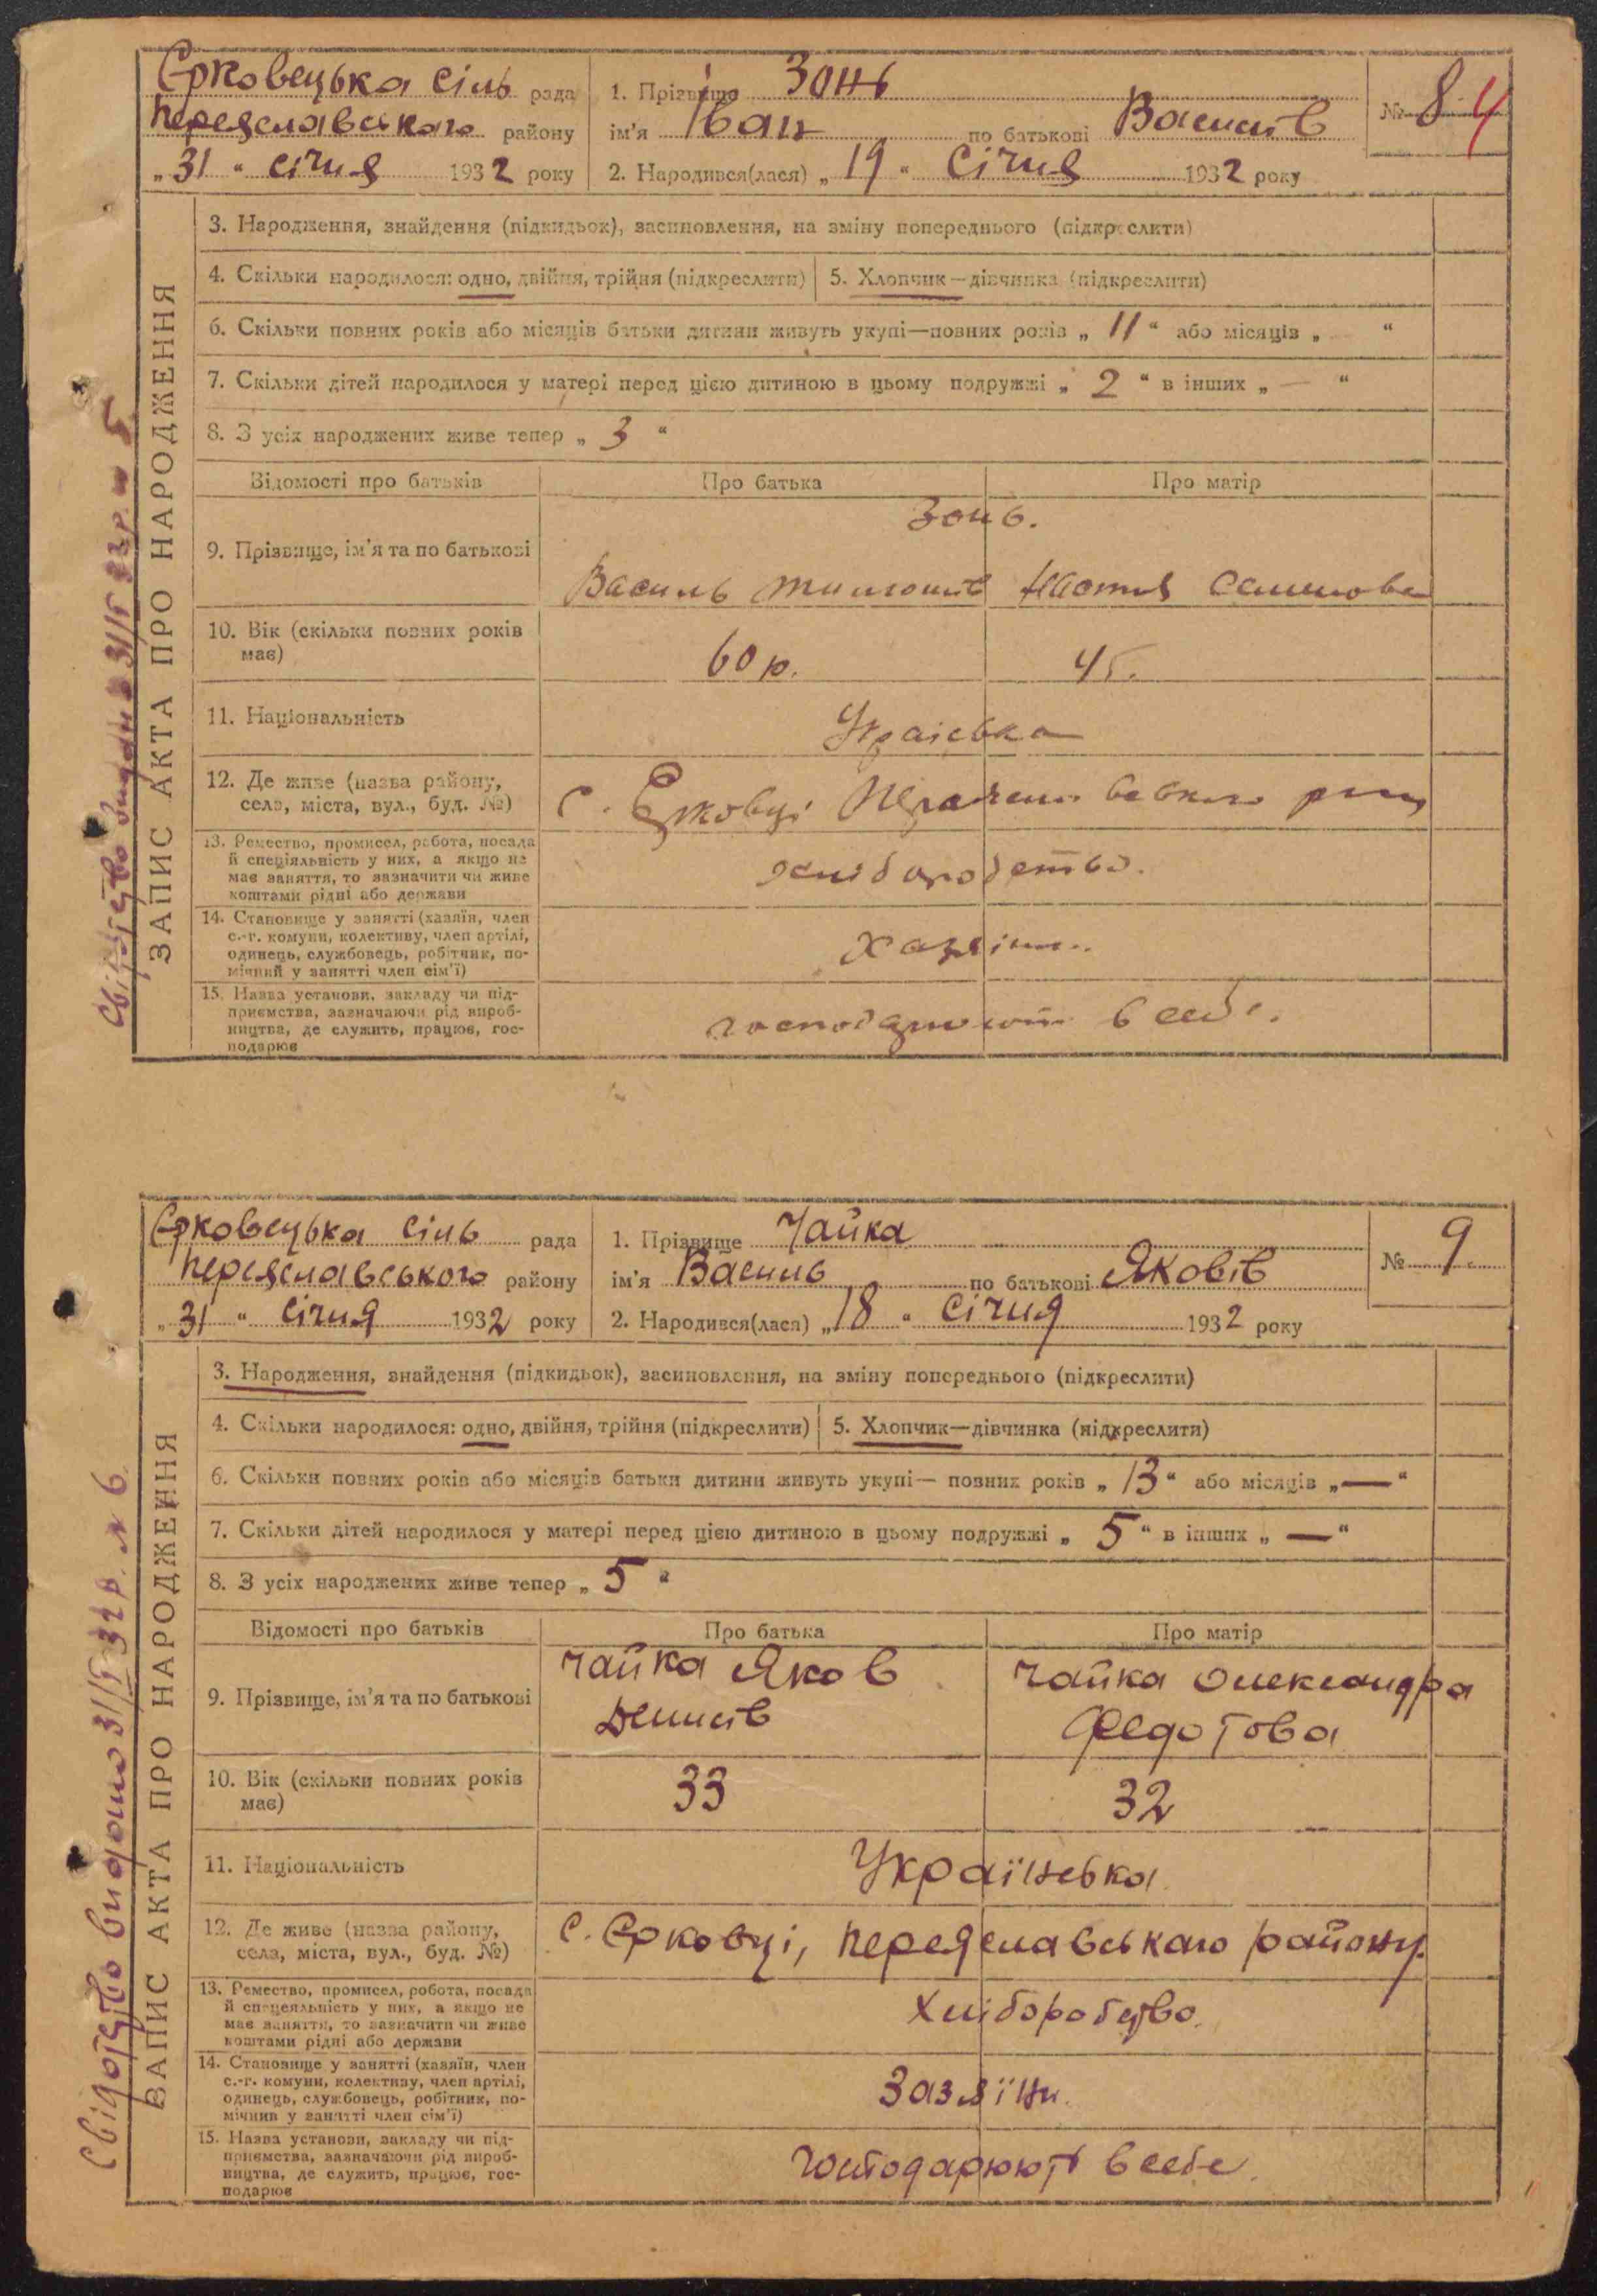 Єрковецька сіль рада
Переяславського району
„31" січня 1932 року
1. Прізвище Зонь
ім'я Іван по батькові Василів
2. Народився(лася) „19" Січня 1932 року
№ 8 4
ЗАПИС АКТА ПРО НАРОДЖЕННЯ
3. Народження, знайдення (підкидьок), засиновлення, на зміну попереднього (підкреслити)
4. Скільки народилося: одно, двійня, трійня (підкреслити)
5. Хлопчик—дівчинка (підкреслити)
6. Скільки повних років або місяців батьки дитини живуть укупі—повних років „11" або місяців „ "
7. Скільки дітей народилося у матері перед цією дитиною в цьому подружжі „2" в інших „—"
8. З усіх народжених живе тепер „3"
Відомості про батьків
Про батька
Про матір
9. Прізвище, ім'я та по батькові
Зонь.
Василь Настя
10. Вік (скільки повних років
має)
60 р.
45.
11. Національність
12. Де живе (назва району,
села, міста, вул., буд. №)
с. Єрковці
13. Ремество, промисел, робота, посада
й спеціяльність у них, а якщо не
має заняття, то зазначити чи живе
коштами рідні або держави
хліборобство.
14. Становище у занятті (хазяїн, член
с.-г. комуни, колективу, член артілі,
одинець, службовець, робітник, по-
мічний у занятті член сім'ї)
хазяїни.
15. Назва установи, закладу чи під-
приємства, зазначаючи рід вироб-
ництва, де служить, працює, гос-
подарює
в себе.
Свідоцтво видано 31/I 32 р. № 5
Єрковецька сіль рада
Переяславського району
„31" січня 1932 року
1. Прізвище Чайка
ім'я Василь по батькові Яковів
2. Народився(лася) „18" Січня 1932 року
№ 9.
ЗАПИС АКТА ПРО НАРОДЖЕННЯ
3. Народження, знайдення (підкидьок), засиновлення, на зміну попереднього (підкреслити)
4. Скільки народилося: одно, двійня, трійня (підкреслити)
5. Хлопчик—дівчинка (підкреслити)
6. Скільки повних років або місяців батьки дитини живуть укупі— повних років „13" або місяців „—"
7. Скільки дітей народилося у матері перед цією дитиною в цьому подружжі „5" в інших „—"
8. З усіх народжених живе тепер „5"
Відомості про батьків
Про батька
Про матір
9. Прізвище, ім'я та по батькові
Чайка Яков
Денисів
Чайка Олександра
Федотова
10. Вік (скільки повних років
має)
33
32
11. Національність
Українська
12. Де живе (назва району,
села, міста, вул., буд. №)
с. Єрковці, Переяславського району.
13. Ремество, промисел, робота, посада
й спецеяльність у них, а якщо не
має заняття, то зазначити чи живе
коштами рідні або держави
Хліборобство.
14. Становище у занятті (хазяїн, член
с.-г. комуни, колективу, член артілі,
одинець, службовець, робітник, по-
мічник у занятті член сім'ї)
Зазяїни.
15. Назва установи, закладу чи під-
приємства, зазначаючи рід вироб-
ництва, де служить, працює, гос-
подарює
господарюють в себе.
Свідоцтво видано 31/I 32 р. № 6.